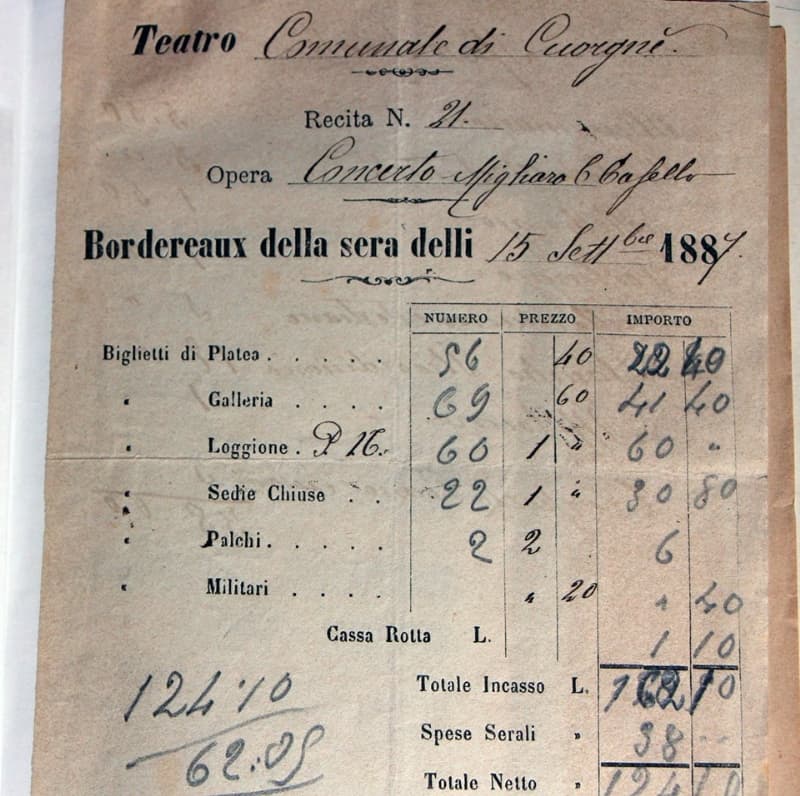 Teatro Comunale di Cuorgnè.
Recita N. 21.
Opera Concerto Migliara
Bordereaux della sera delli 15 Settbre 1887.
NUMERO PREZZO IMPORTO
Biglietti di Platea . . . . . . 56 40 22 40
" Galleria . . . . 69 60 41 40
" Loggione . P 16. 60 1 " 60 "
" Sedie Chiuse . . 22 1 " 30 80
" Palchi . . . . . 2 2 6
" Militari . . . . " 20 " 40
Cassa Rotta L. 1 10
Totale Incasso L. 162 10
Spese Serali " 38 --
Totale Netto " 124 10
124.10
62.05